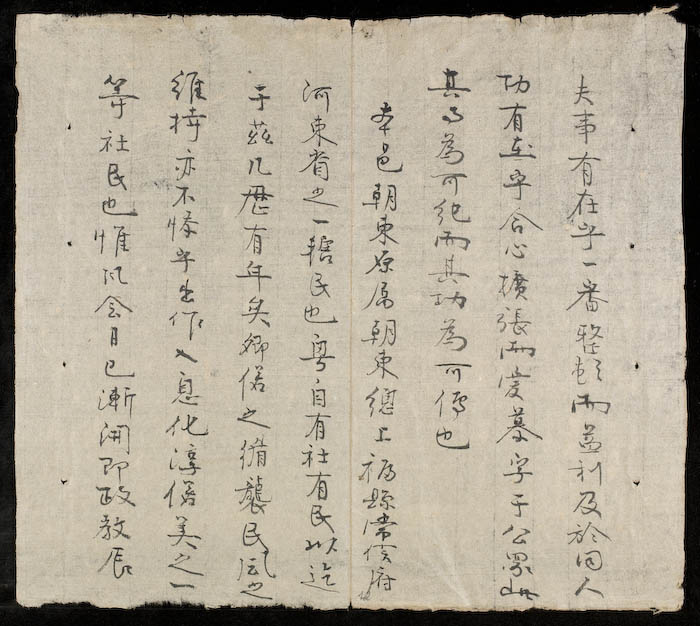 夫事有在乎一番整頓而益利及於同人
功有在乎合心擴張而愛慕孚于公眾此
其事為可紀而其功為可傳也
本邑朝東原属朝東總上福縣常信府
河東省之一轄民也粤自有社有民以迄
于兹凡歷有年矣鄉俗之循襲民風之
維持亦不悕乎出作入息化淳俗美之一
等社民也惟風会日已漸開即政教辰